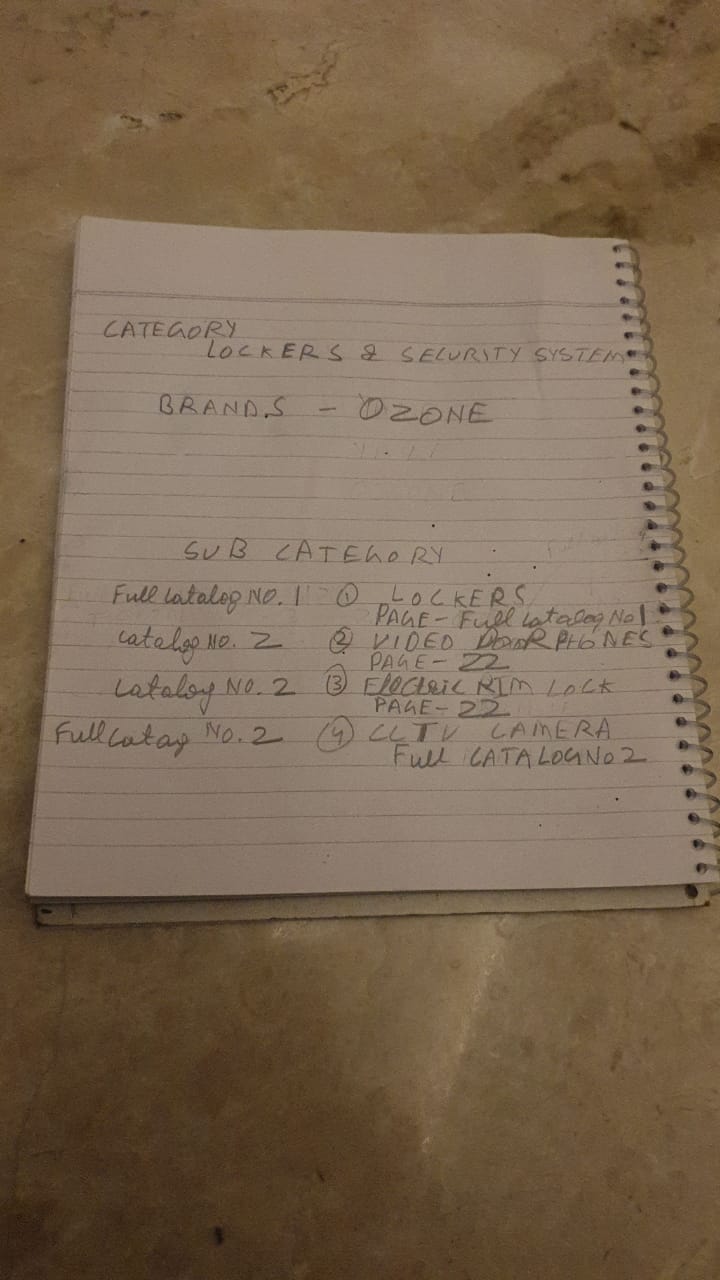 CATEGORY
LOCKERS & SECURITY SYSTEM
BRANDS - OZONE
SUB CATEGORY
Full Catalog NO. 1 ① LOCKERS
PAGE - Full Catalog No 1
Catalog NO. 2 ② VIDEO DOOR PHONES
PAGE - 22
Catalog NO. 2 ③ Electric RIM LOCK
PAGE - 22
Full Catag NO. 2 ④ CCTV CAMERA
Full CATALOG No 2